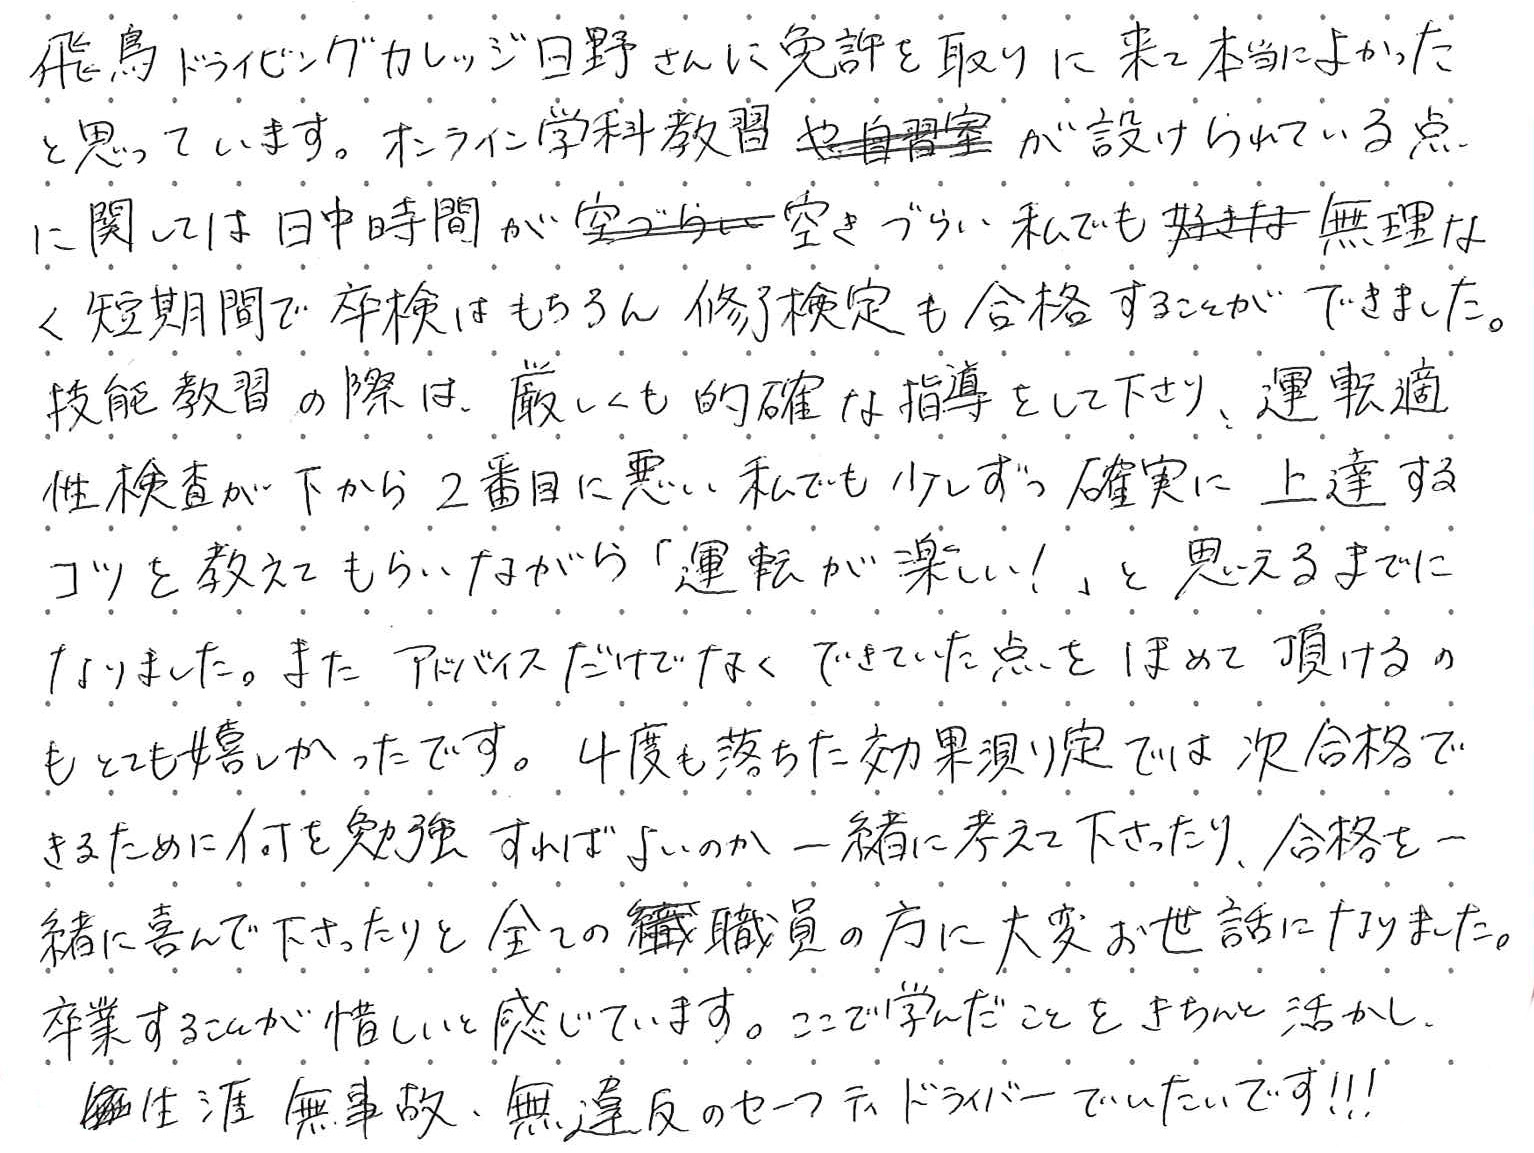 飛鳥ドライビングカレッジ日野さんに免許を取りに来て本当によかった
と思っています。オンライン学科教習や自習室が設けられている点
に関しては日中時間が空づらい空きづらい私でも好きな無理な
く短期間で卒検はもちろん修了検定も合格することができました。
技能教習の際は、厳しくも的確な指導をして下さり、運転適
性検査が下から2番目に悪い私でも少しずつ確実に上達する
コツを教えてもらいながら「運転が楽しい!」と思えるまでに
なりました。またアドバイスだけでなくできていた点をほめて頂けるの
もとても嬉しかったです。4度も落ちた効果測定では次合格で
きるために何を勉強すればよいのか一緒に考えて下さったり、合格を一
緒に喜んで下さったりと全ての職員の方に大変お世話になりました。
卒業することが惜しいと感じています。ここで学んだことをきちんと活かし、
生涯無事故、無違反のセーフティドライバーでいたいです!!!